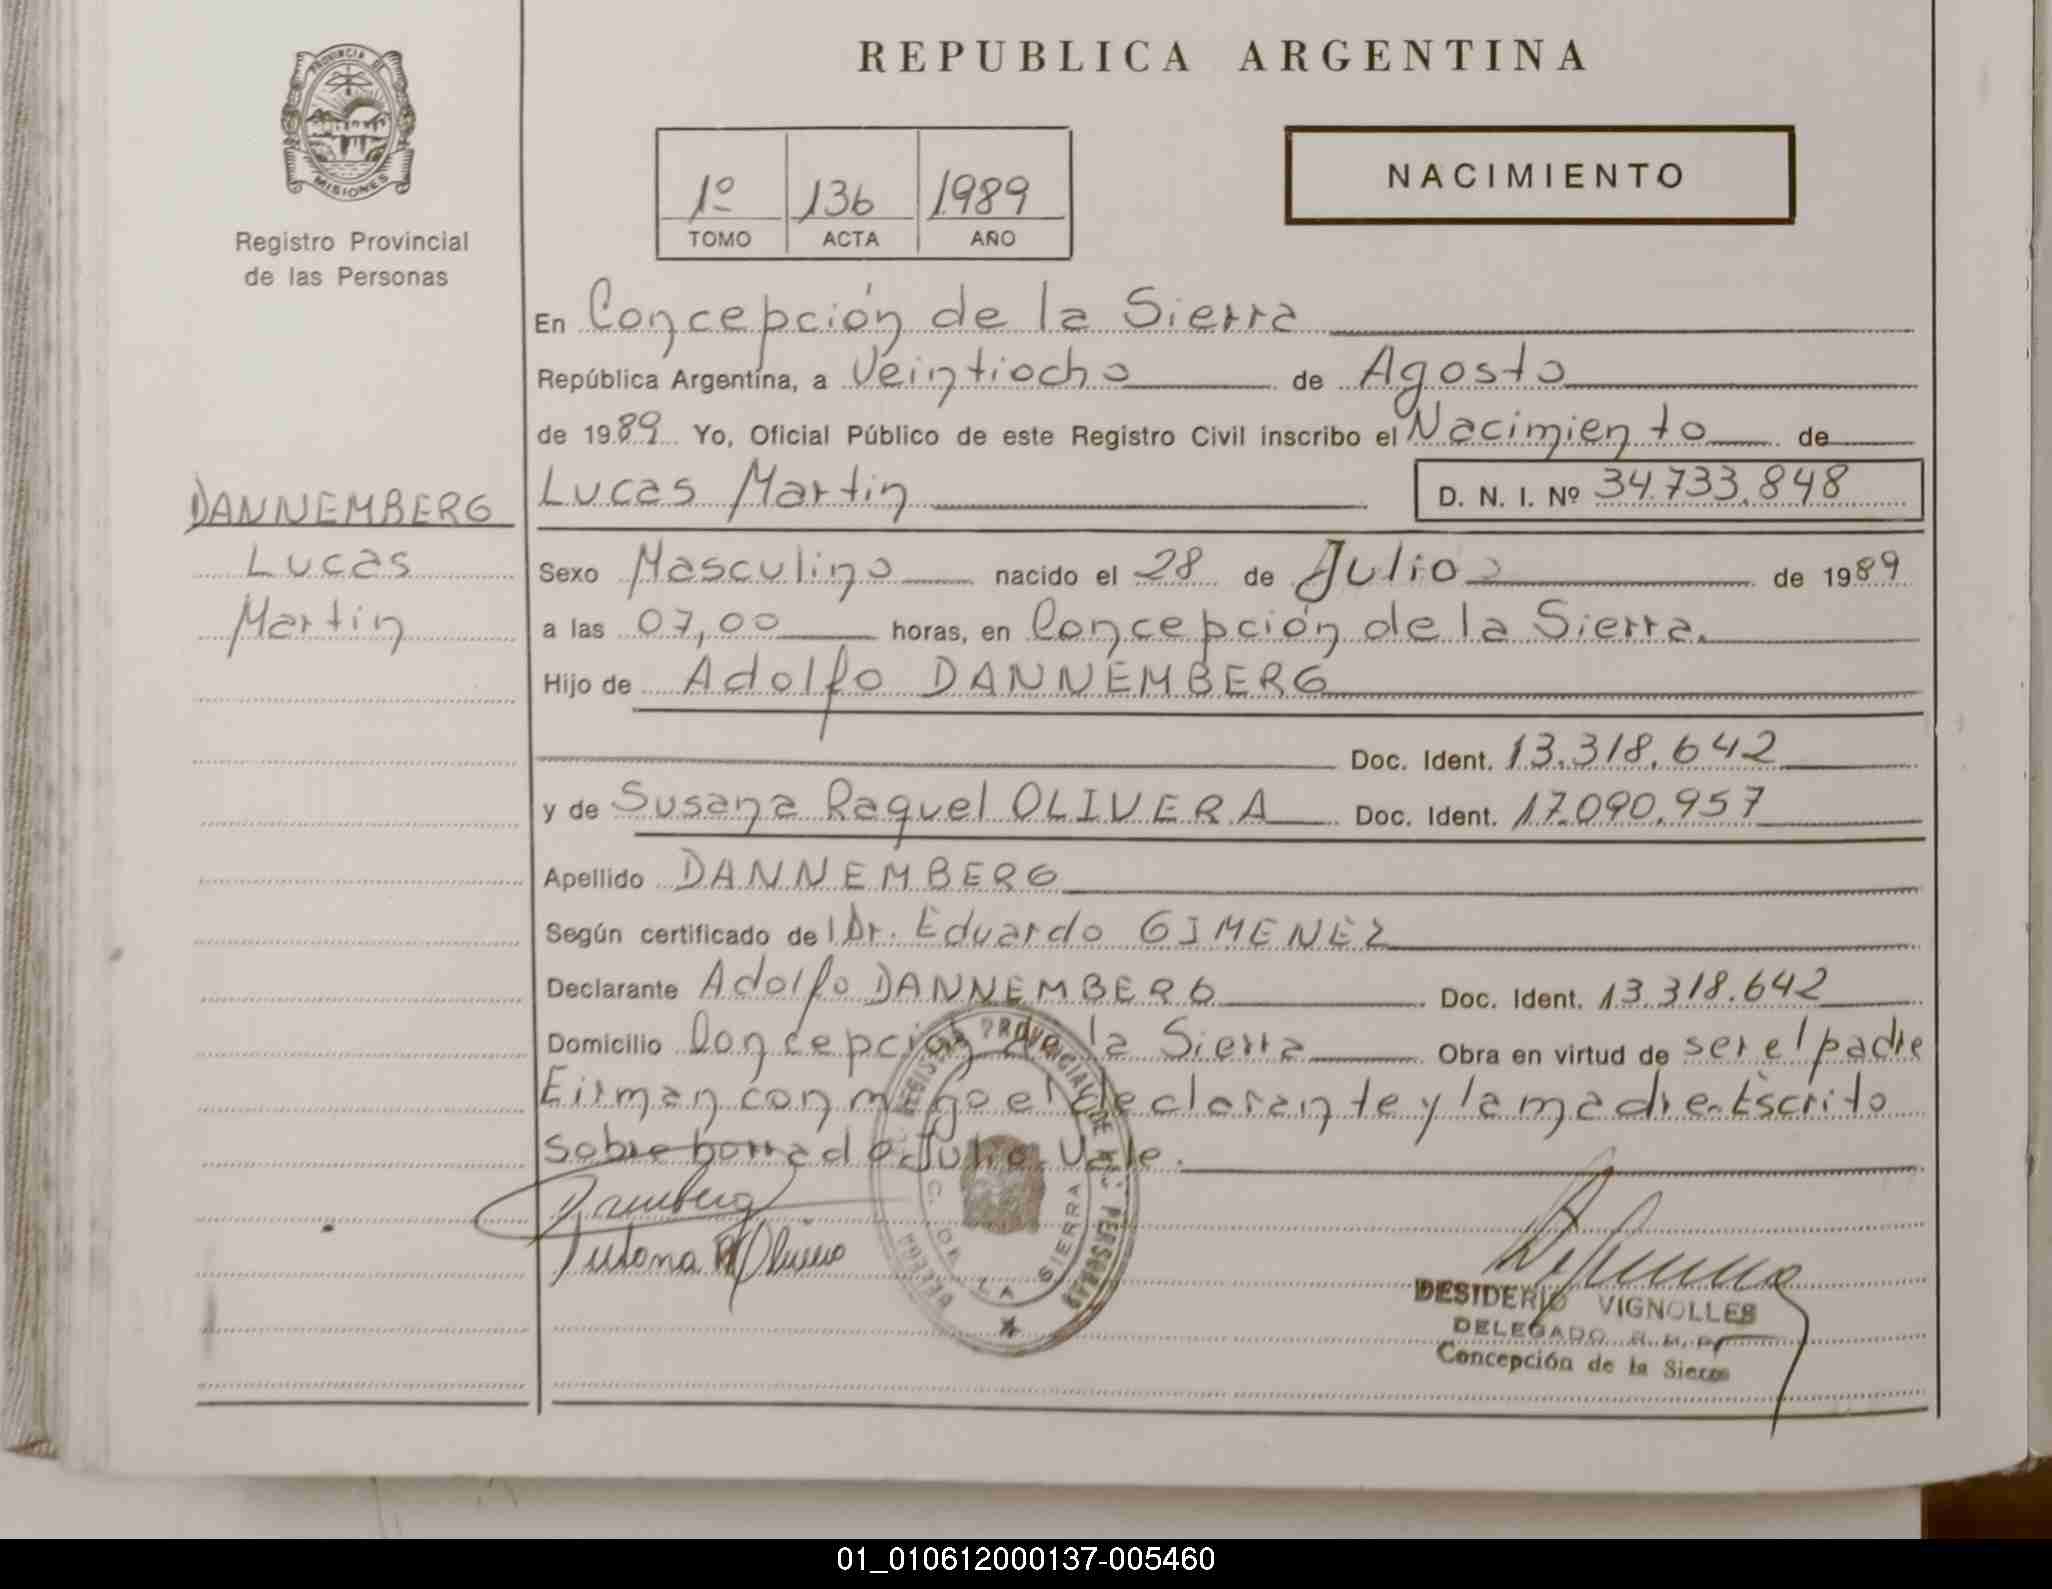 PROVINCIA DE
MISIONES
Registro Provincial
de las Personas
REPUBLICA ARGENTINA
1º 136 1989
TOMO ACTA AÑO
NACIMIENTO
En Concepción de la Sierra
República Argentina, a Veintiocho de Agosto
de 1989 Yo, Oficial Público de este Registro Civil inscribo el Nacimiento de
Lucas Martin D. N. I. Nº 34.733.848
DANNEMBERG
Lucas
Martin
Sexo Masculino nacido el 28 de Julio de 1989
a las 07,00 horas, en Concepción de la Sierra.
Hijo de Adolfo DANNEMBERG
Doc. Ident. 13.318.642
y de Susana Raquel OLIVERA Doc. Ident. 17.090.957
Apellido DANNEMBERG
Según certificado del Dr. Eduardo GIMENEZ
Declarante Adolfo DANNEMBERG Doc. Ident. 13.318.642
Domicilio Concepción de la Sierra Obra en virtud de ser el padre
Firman conmigo el declarante y la madre. Escrito
sobre borrado Julio. Vale.
REGISTRO PROVINCIAL DE LAS PERSONAS
C. DE LA SIERRA
DESIDERIO VIGNOLLES
DELEGADO R. P. P.
Concepción de la Sierra
01_010612000137-005460